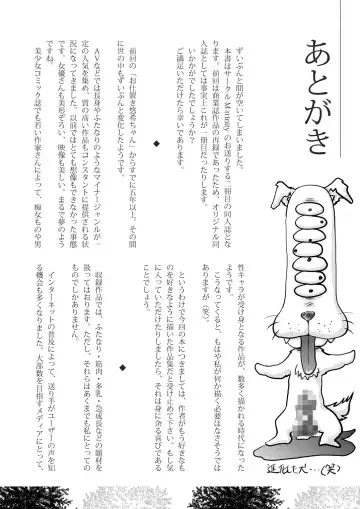 あとがき
ずいぶんと間が空いてしまいました。
本書はサークル Maternity のお送りする二冊目の同人誌とな
ります。前回は商業誌作品の再録であったため、オリジナル同
人誌としては事実上これが一冊目だったりします。
いかがでしたでしょうか？
ご満足いただけたら幸いであります。
◆
前回の「お仕置き悠希ちゃん」からすでに五年以上。その間
に世の中もずいぶんと変化したようです。
AVなどでは長身やふたなりのようなマイナージャンルが一
定の人気を集め、質の高い作品もコンスタントに提供される状
況です。以前ではとても想像もできなかった事態
です。女優さんも美形ぞろい、映像も美しい、まるで夢のよう
ですね。
美少女コミック誌でも若い作家さんによって、痴女ものや男
性キャラが受け身となる作品が、数多く描かれる時代になった
ようです。
こうなってくると、もはや私が何か描く必要はなさそうでは
ありますが（笑）。
というわけで今回の本につきましては、作者がもう好きなも
のを好きなように描いた作品集だと受け止めて下さい。もし気
に入っていただけたりしましたら、それは身に余る喜びである
ことでしょう。
◆
収録作品では、ふたなり・筋肉・多乳・急成長などの題材を
扱ってはおります。ただし、それらはあくまでも私にとっての
ものでしかありません。
インターネットの普及によって、送り手がユーザーの声を知
る機会も多くなりました。大部数を目指すメディアにとって、
進化した犬…(笑)